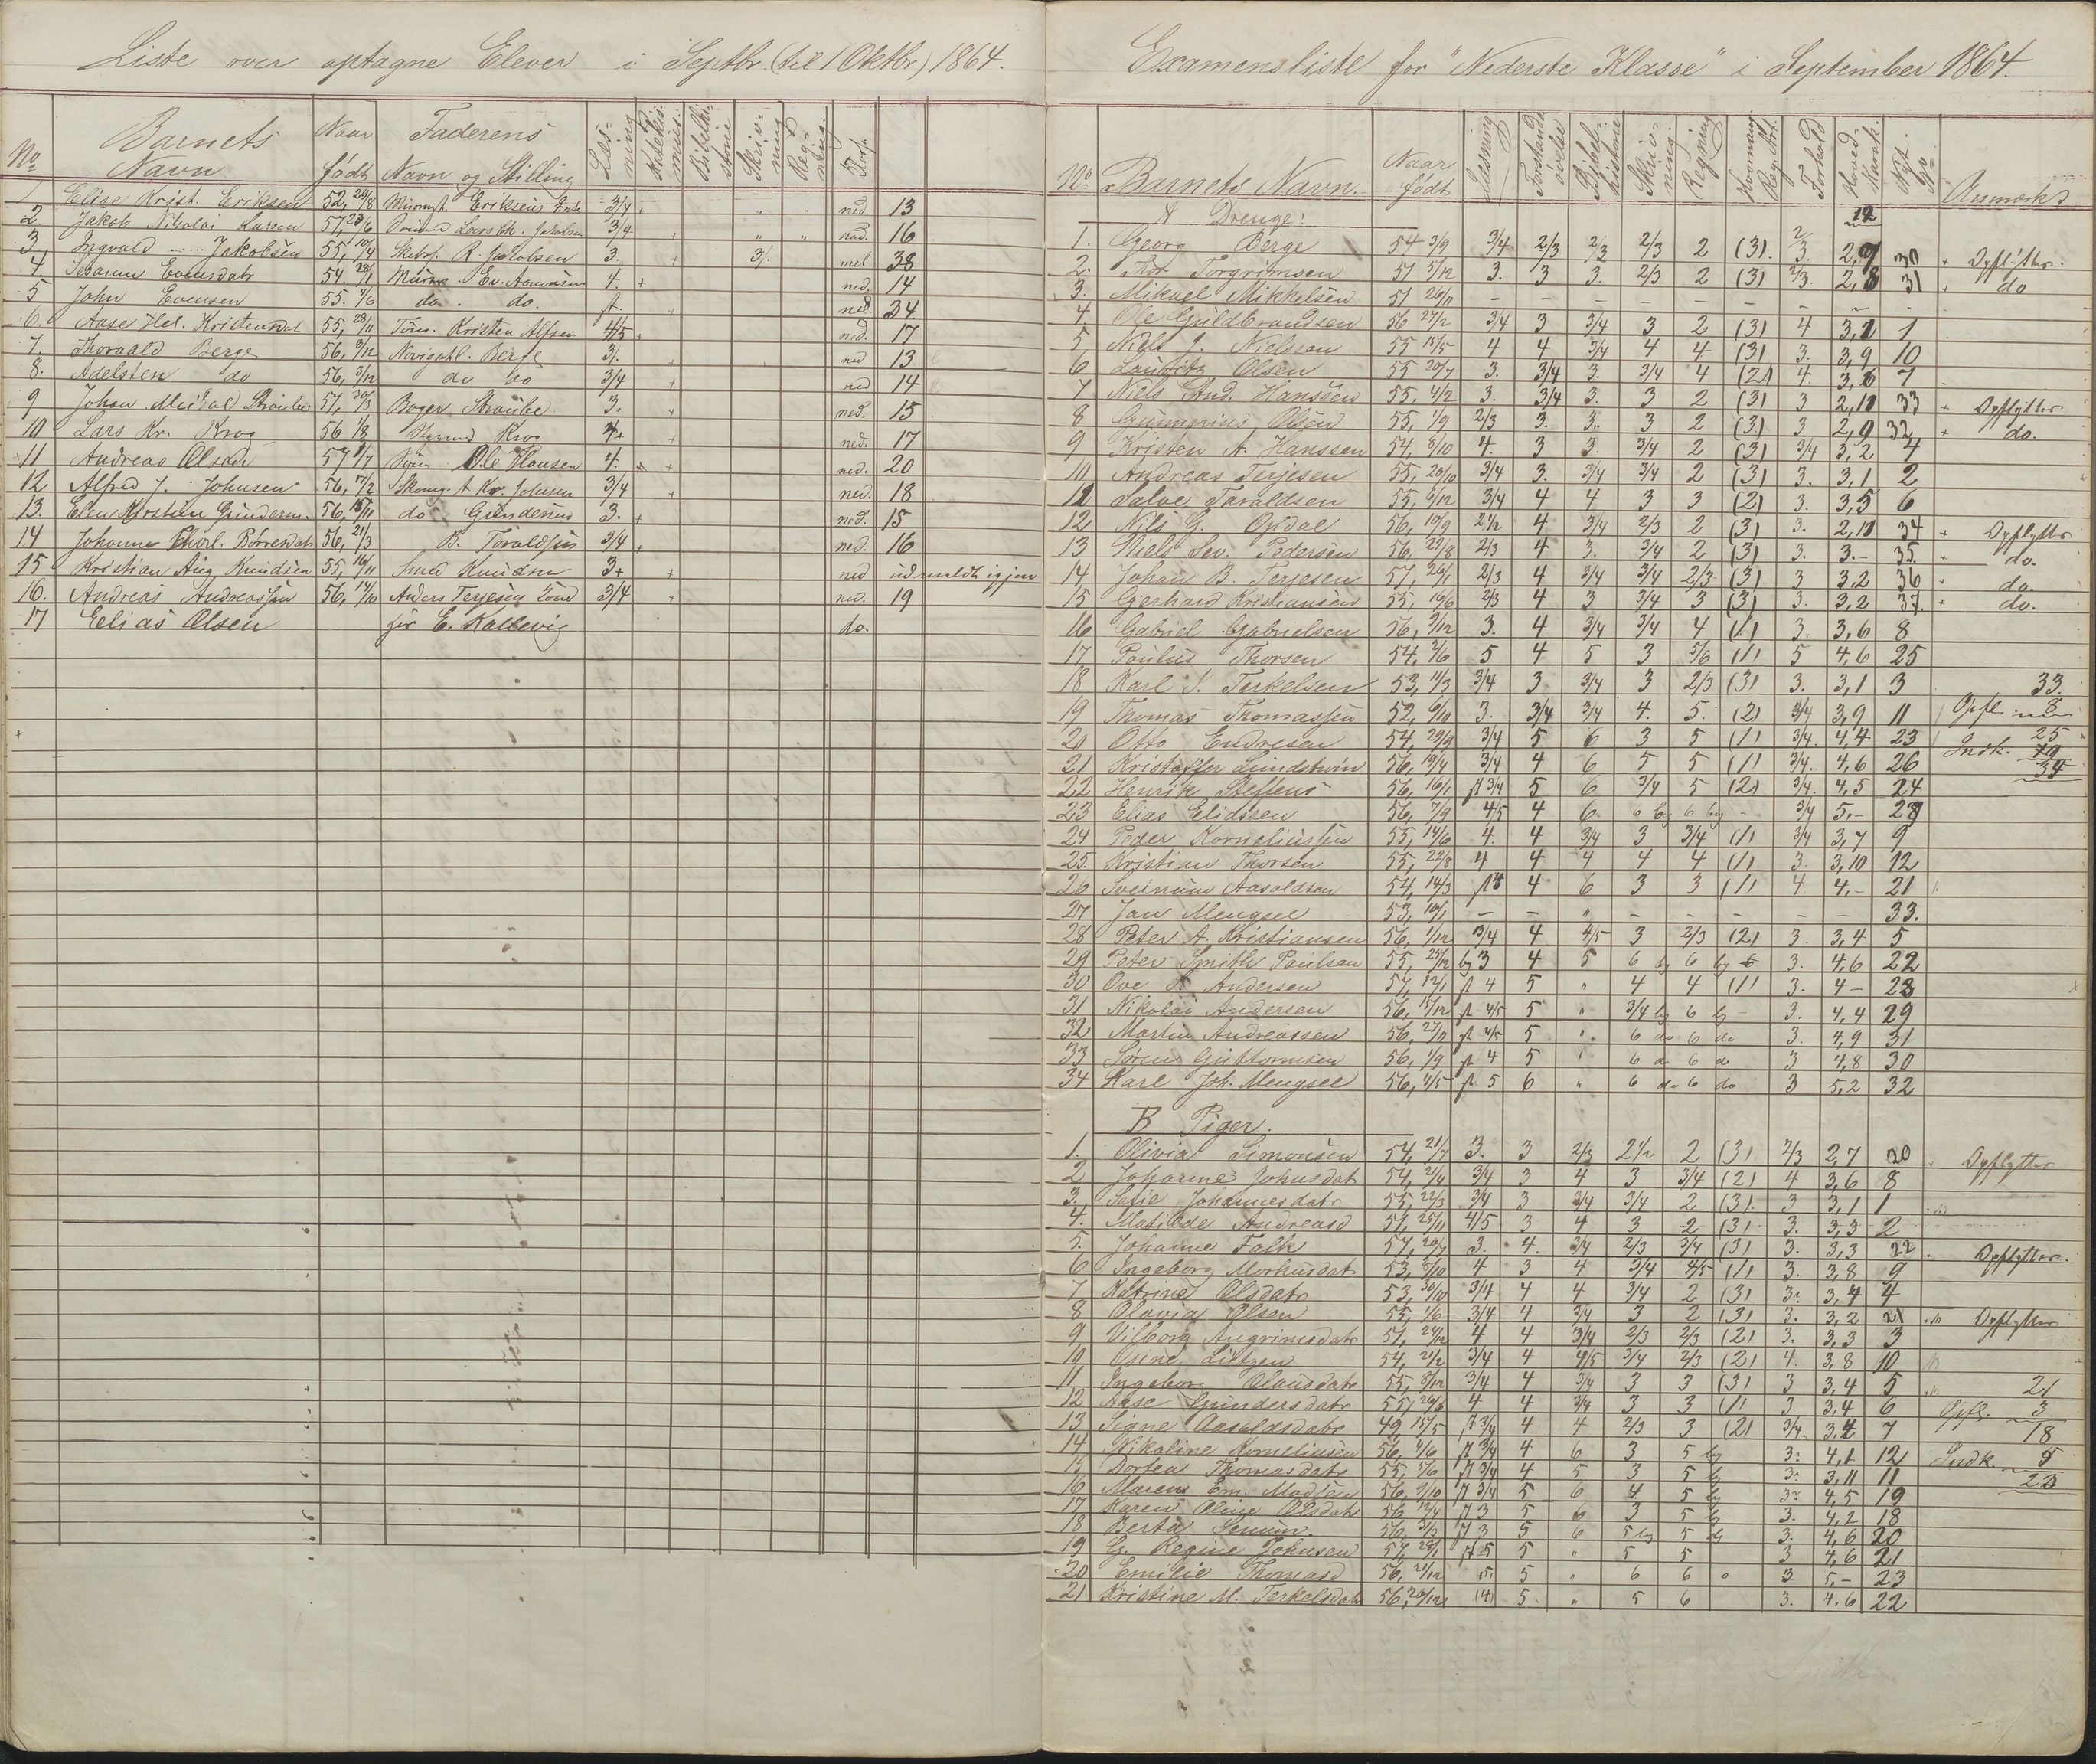 Liste over optagne Elever i Septbr. (til 1 Oktbr) 1864.
No Barnets Navn Naar født Faderens Navn og Stilling Læsning Katekismus. Bibelhistorie Skrivning Regning. Forf.
1 Elise Krist. Eriksen 52, 29/8 Eriksens 3/4 " " ned. 13
2. Jakob Nikolai Larsen 57, 3/4 + " " ned. 16
3. Ingvald Jakobsen 55, 10/4 R. Jakobsen 3. + 3/. mel 38
4. Evensdatr 54. 28/1 Ev. 4. + ned. 14
5 John Evensen 55. 4/6 do. do. + ned. 34
6. Aase Hel. 55, 28/11 Tøm. Kristen Alfsen 4/5 ned. 17
7. Thorvald Berge 56, 3/12 Navigatl. Berge 3/. + ned 13
8. Adelsten do 56, 3/12 do do 3/4 + ned 14
9 Johan 57, 30/3 Bager Straube 3. + ned. 15
10 Lars Kr. Krog 56 1/8 Krog 4+ + ned. 17
11 Andreas Olsen 57 1/7 Ole Hansen 4. + ned. 20
12 Alfred J. Johnsen 56, 17/2 Skom. A Kr. Johnsen 3/4 + ned. 18
13. Elen Kirstine 56, 18/11 do Gundersen 3. + ned. 15
14 Johanne Thorl. Børresdatr 56, 21/3 B. Toraldsen 3/4 + ned. 16
15 Kristian Aug Knudsen 55, 16/11 Smed Knudsen 3+ + ned udmeldt igjen
16. Andreas Andreassen 56, 14/10 Anders Terjesen 3/4 + ned. 19
17 Elias Olsen E. Kallevig do.
Examensliste for "Nederste Klasse" i September 1864.
No Barnets Navn. Naar født Læsning Forstandsøvelse Bibelhistorie Skrivning. Regning Hvormang Reg. Art. Forhold Hovedkarak. Nyt No Anmærkn
A Drenge: 12
1. Georg Berge 54 3/9 3/4 2/3 2/3 2/3 2 (3). 2/3. 2,9 30 + Opflytter.
2. Thor Torgrimsen 57 5/12 3. 3 3. 2/3 2 (3) 2/3. 2,8 31 + do
3. Mikael Mikkelsen 57 26/11 – – – – – – – – -
4. Ole Guldbrandsen 56 27/2 3/4 3 3/4 3 2 (3) 4 3,1 1
5 Niels J. Nielsson 55 15/5 4 4 3/4 4 4 (3) 3. 3,9 10
6 Lauritz Olsen 55 20/7 3. 3/4 3. 3/4 4 (2) 4. 3,6 7
7 Niels And. Hanssen 55, 4/2 3. 3/4 3. 3 2 (3) 3 2,11 33 + Opflytter
8 Gunnerius Olsen 55, 1/9 2/3 3. 3. 3 2 (3) 3 2,9 32 + do.
9 Kristen A. Hanssen 54, 8/10 4. 3 3. 3/4 2 (3) 3/4 3,2 4
10 Andreas Terjesen 55, 20/10 3/4 3. 3/4 3/4 2 (3) 3. 3,1 2
11 Salve Taraldsen 55, 6/12 3/4 4 4 3 3 (2) 3. 3,5 6
12. Nils G. Opdal 56, 10/9 2 1/2 4 3/4 2/3 2 (3) 3. 2,11 34 + Opflytter
13 Niels Sev. Pedersen 56, 29/8 2/3 4 3. 3/4 2 (3) 3. 3.- 35. + do.
14 Johan B. Terjesen 57, 26/1 2/3 4 3/4 3/4 2/3 (3) 3 3,2 36 + do.
15 Gerhard Kristiansen 55, 16/6 2/3 4 3 3/4 3 (3) 3. 3,2 37. + do.
16 Gabriel Gabrielsen 56, 9/12 3. 4 3/4 3/4 4 (1) 3. 3,6 8
17 Paulus Thorsen 54, 2/6 5 4 5 3 5/6 (1) 5 4,6 25
18 Karl S. Terkelsen 53, 11/3 3/4 3 3/4 3 2/3 (3) 3. 3,1 3 33.
19 Thomas Thomassen 52, 6/10 3. 3/4 3/4 4. 5. (2) 3/4 3,9 11 Opfl. 8
20 Otto Endresen 54, 29/9 3/4 5 6 3 5 (1) 3/4. 4,4 23 25
21 Kristoffer Lundstrøm 56, 19/4 3/4 4 6 5 5 (1) 3/4. 4,6 26 Indk. 9
22 Henrik Steffens 56, 16/1 3/4 5 6 3/4 5 (2) 3/4. 4,5 24 34
23 Elias Elidsen 56, 7/9 4/5 4 6 6 bg 6 bg - 3/4 5,- 28
24 Peder Korneliussen 55, 14/6 4. 4 3/4 3 3/4 (1) 3/4 3,7 9
25. Kristian Thorsen 55, 22/8 4 4 4 4 4 (1) 3. 3,10 12
26 Aasoldsen 54, 14/3 4 6 3 3 (1) 4. 4,- 21
27 Jan Mengsel 53, 10/1 – – " – – – – – 33.
28 Peter A. Kristiansen 56, 1/12 3/4 4 4/5 3 2/3 (2) 3. 3,4 5
29 Peter Smith Paulsen 55, 25/12 bg 3 4 5 6 bg 6 bg 3. 4,6 22
30 Ove S. Andersen 57, 12/1 4 5 " 4 4 (1) 3. 4- 23
31 Nikolai Andersen 56, 15/12 4/5 5 " 3/4 bg 6 bg - 3. 4,4 29
32 Martin Andreassen 56, 27/11 4/5 5 " 6 do 6 do 3. 4,9 31
33 Søren Guttormsen 56, 1/9 4 5 " 6 do 6 do 3 4,8 30
34 Karl Joh. Mengsel 56, 11/5 5 6 " 6 do 6 do 3 5,2 32
B Piger.
1. Olivia Simonsen 54, 21/7 3. 3 2/3 2 1/2 2 (3) 2/3 2,7 20 Opflytter
2 Johanne Johnsdat 54, 2/4 3/4 3 4 3 3/4 (2) 4 3,6 8
3. Sofie Johannesdatr 55, 22/3 3/4 3 3/4 3/4 2 (3). 3 3,1 1
4. Matilde Andreasd 57, 25/11 4/5 3 4 3 2 (3) 3. 3,3 2
5. Johanne Falk 57, 20/7 3. 4. 3/4 2/3 3/4 (3) 3. 3,3 22 Opflytter.
6 Ingeborg Morkusdat. 53, 5/10 4 3 4 3/4 4/5 (1) 3. 3,8 9
7 Katrine Olsdatr 53, 30/10 3/4 4 4 3/4 2 (3) 3. 3,4 4
8 Olavia Olsen 55, 1/6 3/4 4 3/4 3 2 (3) 3. 3,2 21 Opflytter
9 Vilborg Angrimsdatr 57, 24/12 4 4 3/4 2/3 2/3 (2) 3. 3,3 3
10 Osine Lützen 54, 21/2 3/4 4 4/5 3/4 2/3 (2) 4. 3,8 10
11 Ingeborg Olausdatr 55, 8/12 3/4 4 3/4 3 3 (3) 3 3,4 5 21
12 Aase Gundersdatr 55, 4 4 3/4 3 3 (1) 3 3,4 6 Opfl. 3
13 Signe Aasoldsdatr 49, 15/5 3/4 4 4 2/3 3 (2) 3/4. 3,4 7 18
14 Nikoline Korneliusen 56, 4/6 3/4 4 6 3 5 bg 3. 4,1 12 Indk. 5
15 Dortea Thomasdatr 55, 5/6 3/4 4 5 3 5 bg 3. 3,11 11 23
16 Maren Em. Madsen 56, 9/10 3/4 5 6 4 5 bg 3. 4,5 19
17 Karen Oline Olsdatr 56 12/4 3 5 6 3 5 bg 3. 4,2 18
18 Berta 56, 31/3 3 5 6 5 bg 5 bg 3. 4,6 20
19 G. Regine Johnsen 57, 28/1 5 5 " 5 5 3 4,6 21
20 Emilie Thomasd 56, 21/12 5 5 " 6 6 3 5,- 23
21 Kristine M. Terkelsdatr 56, 20/12 (4) 5 " 5 6 3. 4,6 22